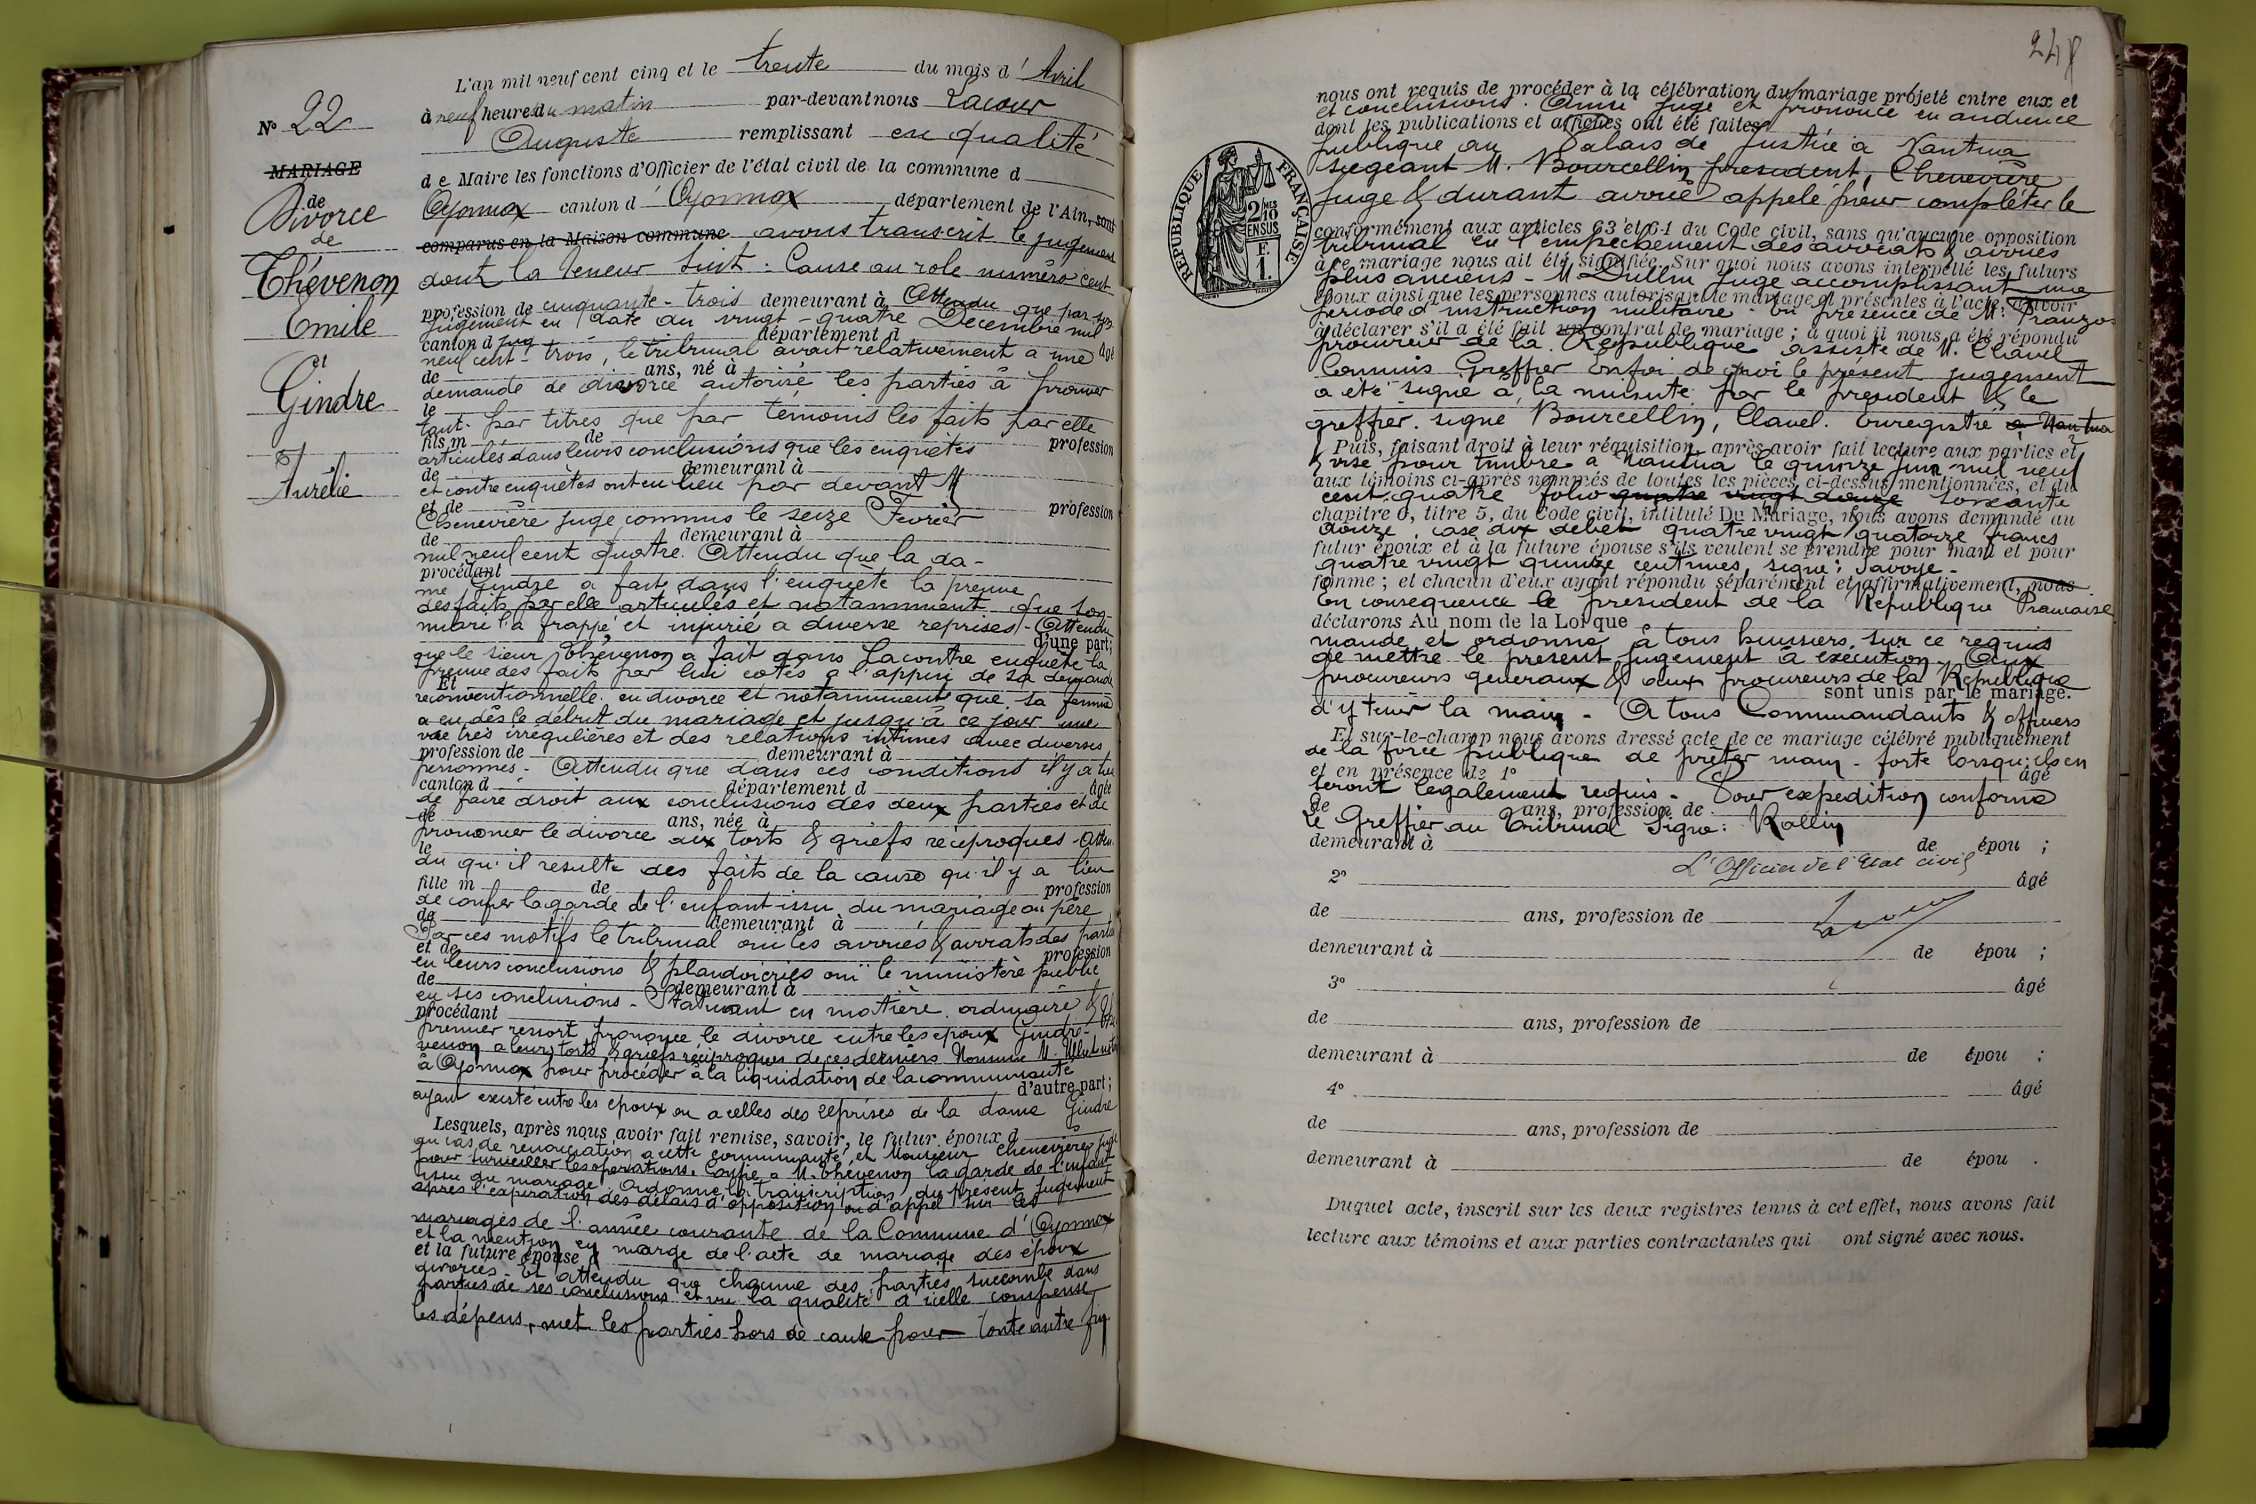 L'an mil neuf cent cinq et le trente du mois d'Avril
N° 22
à neuf heures du matin par-devant nous Lacour
Auguste remplissant en qualité
MARIAGE
de Maire les fonctions d'Officier de l'état civil de la commune d
de
Divorce
de
Oyonnax canton d'Oyonnax département de l'Ain, sont
comparus en la Maison commune avons transcrit le jugement
Thévenon
dont la teneur suit : Cause au role numéro cent
profession de cinquante-trois demeurant à Attendu que par son
Emile
jugement en date du vingt-quatre Décembre mil
canton d département d âgé
neuf cent-trois, le tribunal avait relativement a une
et
de ans, né à
demande de divorce autorisé les parties à prouver
Gindre
le
tant par titres que par témoins les faits par elle
fils m de profession
articulés dans leurs conclusions que les enquêtes
Aurélie
de demeurant à
et contre enquêtes ont eu lieu par devant M
et de profession
Chenevière juge commis le seize Fevrier
de demeurant à
mil neuf cent quatre. Attendu que la da-
procédant
me Gindre a fait dans l'enquête la preuve
des faits par elle articulés et notamment que son
mari l'a frappé et injurié a diverse reprises - Attendu
d'une part ;
que le sieur Thévenon a fait dans la contre enquête la
preuve des faits par lui cotés a l'appui de sa demande
Et
reconventionnelle en divorce et notamment que sa femme
a eu dès le début du mariage et jusqu'à ce jour une
vie très irregulières et des relations intimes avec diverses
profession de demeurant à
personnes. Attendu que dans ces conditions il y a lieu
canton d département d âgée
de faire droit aux conclusions des deux parties et de
de ans, née à
prononcer le divorce aux torts & griefs réciproques - Atten
le
du qu'il résulte des faits de la cause qu'il y a lieu
fille m de profession
de confier la garde de l'enfant issu du mariage au père
de demeurant à
Par ces motifs le tribunal oui les avoués & avocats des parties
et de profession
en leurs conclusions & plaidoieries oui le ministère public
de demeurant à
en ses conclusions - Statuant en matière ordinaire &
procédant
premier ressort prononce le divorce entre les epoux Gindre-Thé
venon a leurs torts & griefs réciproques de ces derniers Nomme M.
à Oyonnax pour procéder à la liquidation de la communauté
d'autre part ;
ayant existé entre les epoux ou a celles des reprises de la dame Gindre
Lesquels, après nous avoir fait remise, savoir, le futur époux d
au cas de renonciation a cette communauté, et Monsieur Chenevière juge
pour surveiller les opérations. Confie a M. Thévenon la garde de l'enfant
issu du mariage. Ordonne la transcription du présent jugement
après l'expiration des délais d'opposition ou d'appel sur les
mariages de l'année courante de la Commune d'Oyonnax
et la mention en marge de l'acte de mariage des époux
et la future épouse d
divorcés - Et attendu que chacune des parties succombe dans
parties de ses conclusions et vu la qualité d'icelle compense
les dépens, met les parties hors de cause pour toute autre fin
248
nous ont requis de procéder à la célébration du mariage projeté entre eux et
et conclusions. Ainsi jugé et prononcé en audience
dont les publications et affiches ont été faites
publique au Palais de Justice à Nantua
siégeant M. Bourcellin président, Chenevière
juge & durant avoué appelé pour compléter le
conformément aux articles 63 et 64 du Code civil, sans qu'aucune opposition
tribunal en l'empêchement des avocats & avoués
à ce mariage nous ait été signifiée. Sur quoi nous avons interpellé les futurs
plus anciens - M Dullin juge accomplissant une
époux ainsi que les personnes autorisant le mariage et présentes à l'acte, d'avoir
période d'instruction militaire - En présence de M. Franzos
à déclarer s'il a été fait un contrat de mariage ; à quoi il nous a été répondu
procureur de la République assisté de M. Clavel
Commis Greffier En foi de quoi le présent jugement
a été signé à la minute par le président & le
greffier. signé Bourcellin, Clavel. Enregistré à Nantua
Puis, faisant droit à leur réquisition, après avoir fait lecture aux parties et
& visé pour timbre a Nantua le quinze juin mil neuf
aux témoins ci-après nommés de toutes les pièces ci-dessus mentionnées, et du
cent quatre folio quatre vingt douze soixante
chapitre 6, titre 5, du Code civil, intitulé Du Mariage, nous avons demandé au
douze, case dix debet quatre vingt quatorze francs
futur époux et à la future épouse s'ils veulent se prendre pour mari et pour
quatre vingt quinze centimes, signé : Savoye -
femme ; et chacun d'eux ayant répondu séparément et affirmativement, nous
En consequence le président de la République Francaise
déclarons Au nom de la Loi que
mande et ordonne à tous huissiers sur ce requis
de mettre le présent jugement à exécution - Aux
procureurs généraux & aux procureurs de la République
sont unis par le mariage.
d'y tenir la main - A tous Commandants & officiers
Et sur-le-champ nous avons dressé acte de ce mariage célébré publiquement
de la force publique de prêter main-forte lorsqu'ils en
et en présence de 1° âgé
seront légalement requis - Pour expedition conforme
de ans, profession de
Le Greffier au Tribunal Signé : Rollin
demeurant à de épou ;
L'Officier de l'Etat civil
2° âgé
de ans, profession de
Lacour
demeurant à de épou ;
3° âgé
de ans, profession de
demeurant à de épou ;
4° âgé
de ans, profession de
demeurant à de épou .
Duquel acte, inscrit sur les deux registres tenus à cet effet, nous avons fait
lecture aux témoins et aux parties contractantes qui ont signé avec nous.
RÉPUBLIQUE FRANÇAISE
2/10 MES
EN SUS
F.
1.